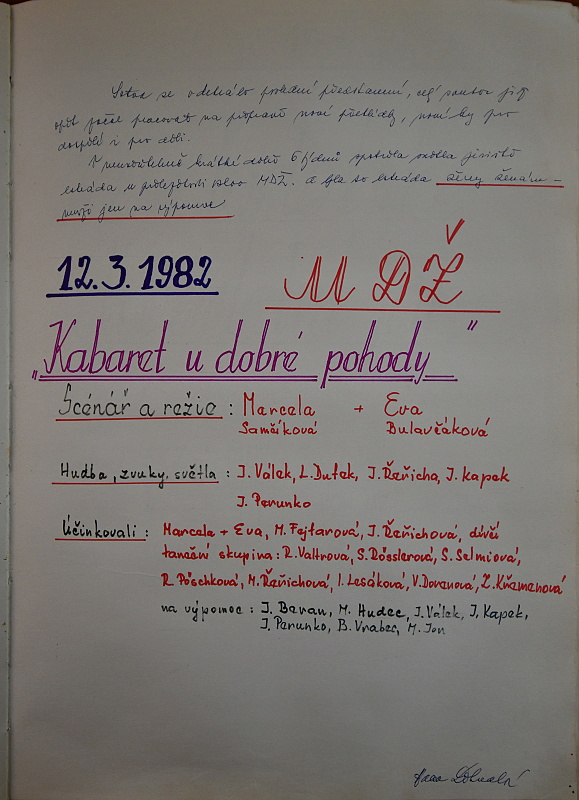 Sotva se odehrálo poslední představení, celý soubor již
opět počal pracovat na přípravě nové přehlídky, nové hry pro
dospělé i pro děti.
V neuvěřitelně krátké době 6 týdnů spatřila světla jeviště
estráda u příležitosti oslav MDŽ. A byla to estráda ženy ženám –
muži jen na výpomoc
12.3.1982 MDŽ
„Kabaret u dobré pohody"
Scénář a režie : Marcela + Eva
Samčíková Bulavčáková
Hudba, zvuky, světla : J. Válek, L. Dufek, J. Řeřicha, J. Kapek
J. Perunko
Účinkovali : Marcela + Eva, M. Fejfarová, J. Řeřichová, dívčí
taneční skupina: R. Valtrová, S. Rösslerová, S. Selmiová,
R. Pöschková, M. Řeřichová, I. Lesáková, V. Dovanová, Z. Křemenová
na výpomoc : J. Beran, M. Hudec, J. Válek, J. Kapek,
J. Perunko, B. Vrabec, M. Jon